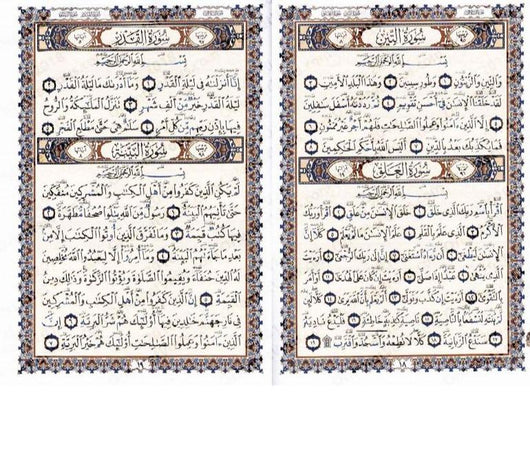 سُورَةُ التِّينِ
بِسْمِ اللَّهِ الرَّحْمَٰنِ الرَّحِيمِ
وَالتِّينِ وَالزَّيْتُونِ ١ وَطُورِ سِينِينَ ٢ وَهَٰذَا الْبَلَدِ الْأَمِينِ ٣
لَقَدْ خَلَقْنَا الْإِنسَٰنَ فِي أَحْسَنِ تَقْوِيمٍ ٤ ثُمَّ رَدَدْنَٰهُ أَسْفَلَ سَٰفِلِينَ
٥ إِلَّا الَّذِينَ ءَامَنُوا وَعَمِلُوا الصَّٰلِحَٰتِ فَلَهُمْ أَجْرٌ غَيْرُ مَمْنُونٍ ٦
فَمَا يُكَذِّبُكَ بَعْدُ بِالدِّينِ ٧ أَلَيْسَ اللَّهُ بِأَحْكَمِ الْحَٰكِمِينَ ٨
سُورَةُ الْعَلَقِ
بِسْمِ اللَّهِ الرَّحْمَٰنِ الرَّحِيمِ
اقْرَأْ بِاسْمِ رَبِّكَ الَّذِي خَلَقَ ١ خَلَقَ الْإِنسَٰنَ مِنْ عَلَقٍ ٢ اقْرَأْ وَرَبُّكَ
الْأَكْرَمُ ٣ الَّذِي عَلَّمَ بِالْقَلَمِ ٤ عَلَّمَ الْإِنسَٰنَ مَا لَمْ يَعْلَمْ ٥ كَلَّا إِنَّ
الْإِنسَٰنَ لَيَطْغَىٰ ٦ أَن رَّءَاهُ اسْتَغْنَىٰ ٧ إِنَّ إِلَىٰ رَبِّكَ الرُّجْعَىٰ ٨ أَرَءَيْتَ
الَّذِي يَنْهَىٰ ٩ عَبْدًا إِذَا صَلَّىٰ ١٠ أَرَءَيْتَ إِن كَانَ عَلَى الْهُدَىٰ ١١ أَوْ أَمَرَ
بِالتَّقْوَىٰ ١٢ أَرَءَيْتَ إِن كَذَّبَ وَتَوَلَّىٰ ١٣ أَلَمْ يَعْلَم بِأَنَّ اللَّهَ يَرَىٰ ١٤ كَلَّا لَئِن
لَّمْ يَنتَهِ لَنَسْفَعًا بِالنَّاصِيَةِ ١٥ نَاصِيَةٍ كَٰذِبَةٍ خَاطِئَةٍ ١٦ فَلْيَدْعُ نَادِيَهُ
١٧ سَنَدْعُ الزَّبَانِيَةَ ١٨ كَلَّا لَا تُطِعْهُ وَاسْجُدْ وَاقْتَرِب ۩ ١٩
سُورَةُ الْقَدْرِ
بِسْمِ اللَّهِ الرَّحْمَٰنِ الرَّحِيمِ
إِنَّا أَنزَلْنَٰهُ فِي لَيْلَةِ الْقَدْرِ ١ وَمَا أَدْرَىٰكَ مَا لَيْلَةُ الْقَدْرِ ٢
لَيْلَةُ الْقَدْرِ خَيْرٌ مِّنْ أَلْفِ شَهْرٍ ٣ تَنَزَّلُ الْمَلَٰئِكَةُ وَالرُّوحُ
فِيهَا بِإِذْنِ رَبِّهِم مِّن كُلِّ أَمْرٍ ٤ سَلَٰمٌ هِيَ حَتَّىٰ مَطْلَعِ الْفَجْرِ ٥
سُورَةُ الْبَيِّنَةِ
بِسْمِ اللَّهِ الرَّحْمَٰنِ الرَّحِيمِ
لَمْ يَكُنِ الَّذِينَ كَفَرُوا مِنْ أَهْلِ الْكِتَٰبِ وَالْمُشْرِكِينَ مُنفَكِّينَ
حَتَّىٰ تَأْتِيَهُمُ الْبَيِّنَةُ ١ رَسُولٌ مِّنَ اللَّهِ يَتْلُوا صُحُفًا مُّطَهَّرَةً ٢
فِيهَا كُتُبٌ قَيِّمَةٌ ٣ وَمَا تَفَرَّقَ الَّذِينَ أُوتُوا الْكِتَٰبَ إِلَّا مِن
بَعْدِ مَا جَاءَتْهُمُ الْبَيِّنَةُ ٤ وَمَا أُمِرُوا إِلَّا لِيَعْبُدُوا اللَّهَ مُخْلِصِينَ
لَهُ الدِّينَ حُنَفَاءَ وَيُقِيمُوا الصَّلَوٰةَ وَيُؤْتُوا الزَّكَوٰةَ وَذَٰلِكَ دِينُ
الْقَيِّمَةِ ٥ إِنَّ الَّذِينَ كَفَرُوا مِنْ أَهْلِ الْكِتَٰبِ وَالْمُشْرِكِينَ
فِي نَارِ جَهَنَّمَ خَٰلِدِينَ فِيهَا أُولَٰئِكَ هُمْ شَرُّ الْبَرِيَّةِ ٦ إِنَّ
الَّذِينَ ءَامَنُوا وَعَمِلُوا الصَّٰلِحَٰتِ أُولَٰئِكَ هُمْ خَيْرُ الْبَرِيَّةِ ٧